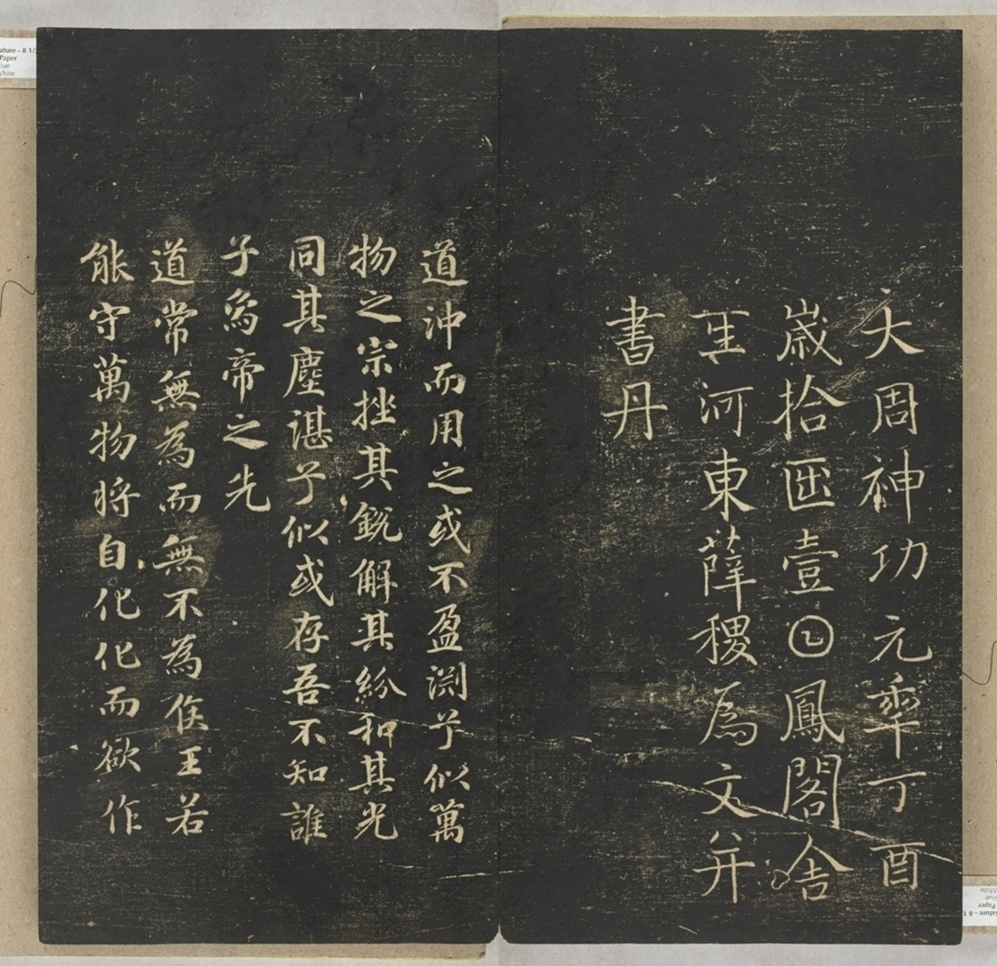 大周神功元秊丁酉
歲拾𠥱壹𡆠鳳閣舍
𤯔河東薛稷爲文并
書丹
道沖而用之或不盈渕乎似萬
物之宗挫其銳解其紛和其光
同其塵湛乎似或存吾不知誰
子象帝之先
道常無為而無不為侯王若
能守萬物將自化化而欲作
ature - 8 1/2
Paper
White